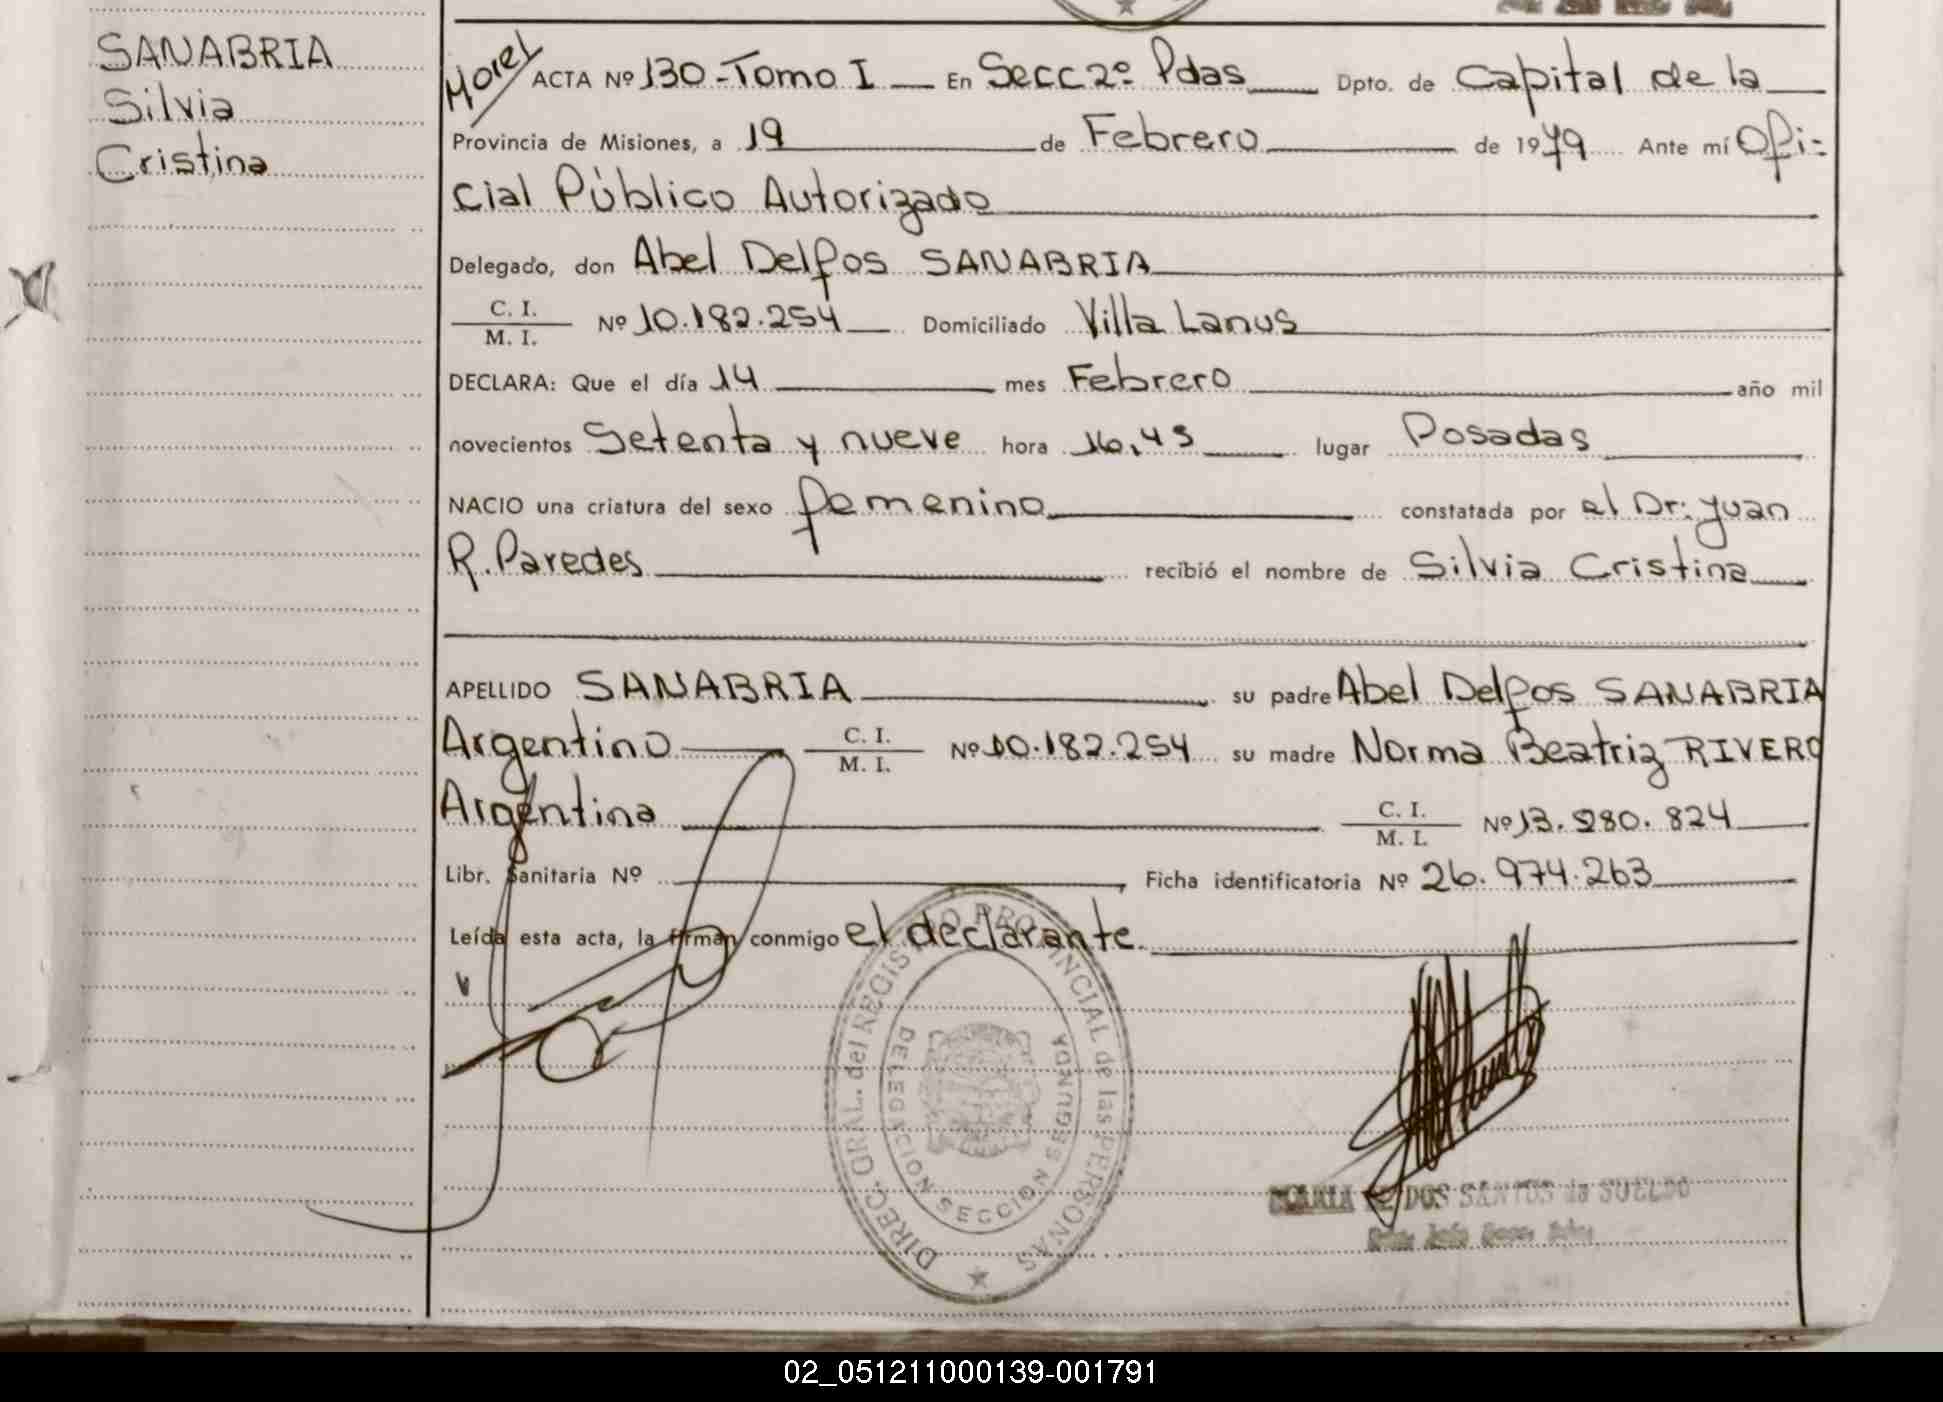 SANABRIA
Silvia
Cristina
Morel
ACTA Nº 130-Tomo I En Secc 2º Pdas Dpto. de Capital de la
Provincia de Misiones, a 19 de Febrero de 1979 Ante mí Ofi-
cial Público Autorizado
Delegado, don Abel Delfos SANABRIA
C. I.
M. I. Nº 10.182.254 Domiciliado Villa Lanus
DECLARA: Que el día 14 mes Febrero año mil
novecientos Setenta y nueve hora 16,45 lugar Posadas
NACIO una criatura del sexo femenino constatada por el Dr: Juan
R. Paredes recibió el nombre de Silvia Cristina
APELLIDO SANABRIA su padre Abel Delfos SANABRIA
Argentino C. I.
M. I. Nº 10.182.254 su madre Norma Beatriz RIVERO
Argentina C. I.
M. I. Nº 13.280.824
Libr. Sanitaria Nº Ficha identificatoria Nº 26.974.263
Leída esta acta, la firman conmigo el declarante.
DIREC. GRAL. del REGISTRO PROVINCIAL de las PERSONAS
DELEGACION SECCION SEGUNDA
DOS SANTOS de SUELDO
02_051211000139-001791